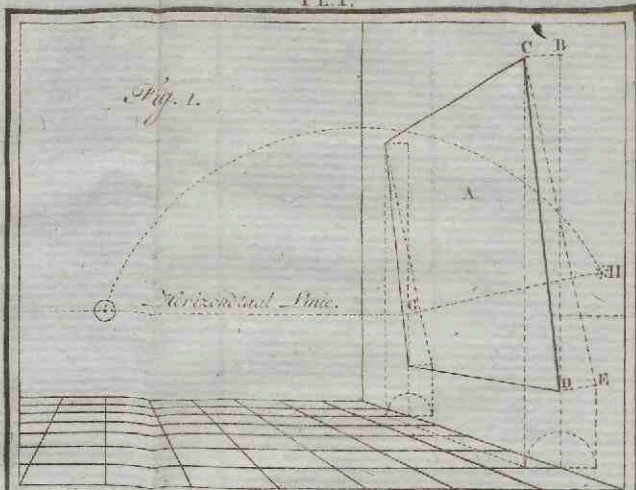 PL. I.
C B
Fig. 1.
A
H
Horizontaal Linie.
G
D E